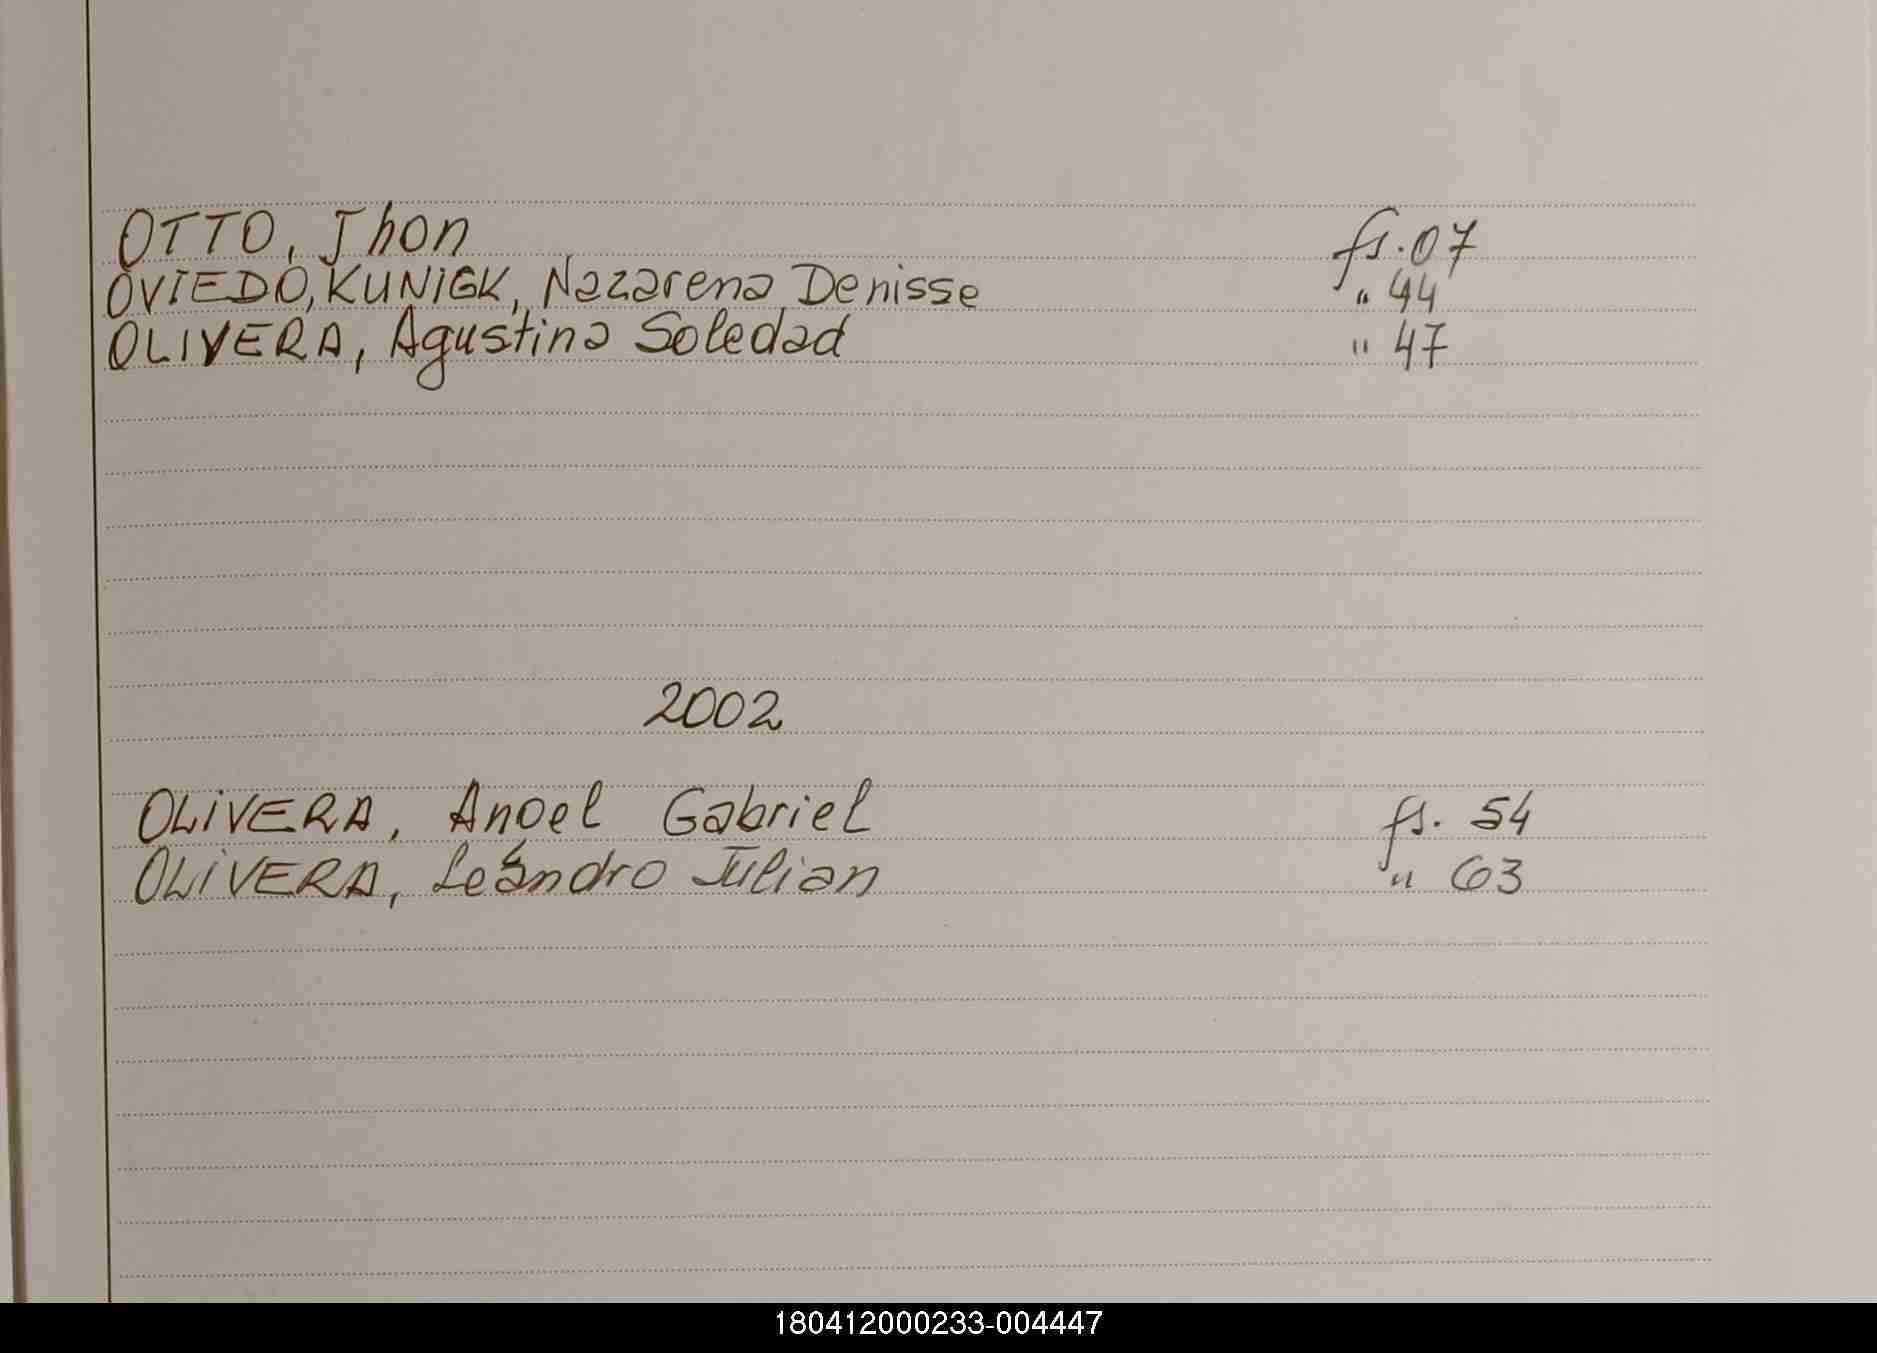 OTTO, Jhon fs. 07
OVIEDO, KUNIGK, Nazarena Denisse " 44
OLIVERA, Agustina Soledad " 47
2002
OLIVERA, Angel Gabriel fs. 54
OLIVERA, Leandro Julian " 63
180412000233-004447